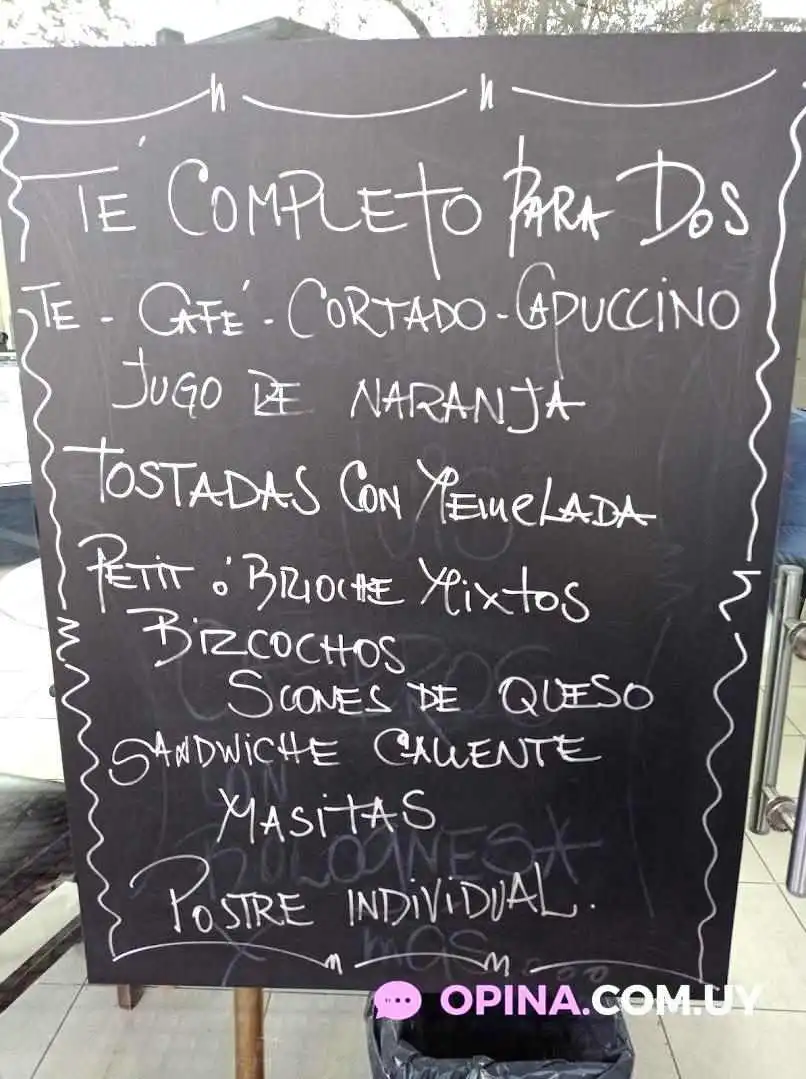 TÉ COMPLETO PARA DOS
TE - CAFÉ - CORTADO - CAPUCCINO
JUGO DE NARANJA
TOSTADAS CON MERMELADA
PETIT Ó BRIOCHE MIXTOS
BIZCOCHOS
SCONES DE QUESO
SANDWICHE CALIENTE
MASITAS
POSTRE INDIVIDUAL.
BOLOGNESA
MAS...
OPINA.COM.UY